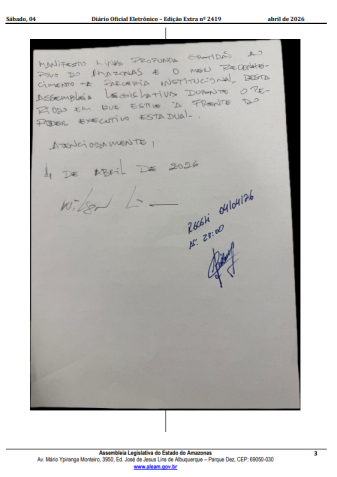 Sábado, 04 Diário Oficial Eletrônico – Edição Extra nº 2419 abril de 2026
MANIFESTO MINHA PROFUNDA GRATIDÃO AO
POVO DO AMAZONAS E O MEU RECONHE-
CIMENTO A PARCERIA INSTITUCIONAL DESTA
ASSEMBLEIA LEGISLATIVA DURANTE O PE-
RÍODO EM QUE ESTIVE A FRENTE DO
PODER EXECUTIVO ESTADUAL.
ATENCIOSAMENTE,
4 DE ABRIL DE 2026
Wilson
Recebi 04/04/26
às: 23:00
Assembleia Legislativa do Estado do Amazonas
Av. Mário Ypiranga Monteiro, 3950, Ed. José de Jesus Lins de Albuquerque – Parque Dez, CEP: 69050-030
www.aleam.gov.br
3